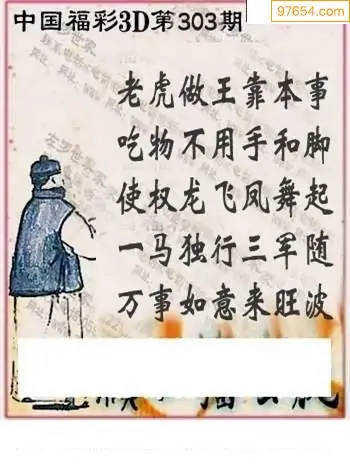 97654.com
中国福彩3D第303期
老虎做王靠本事
吃物不用手和脚
使权龙飞凤舞起
一马独行三军随
万事如意来旺波